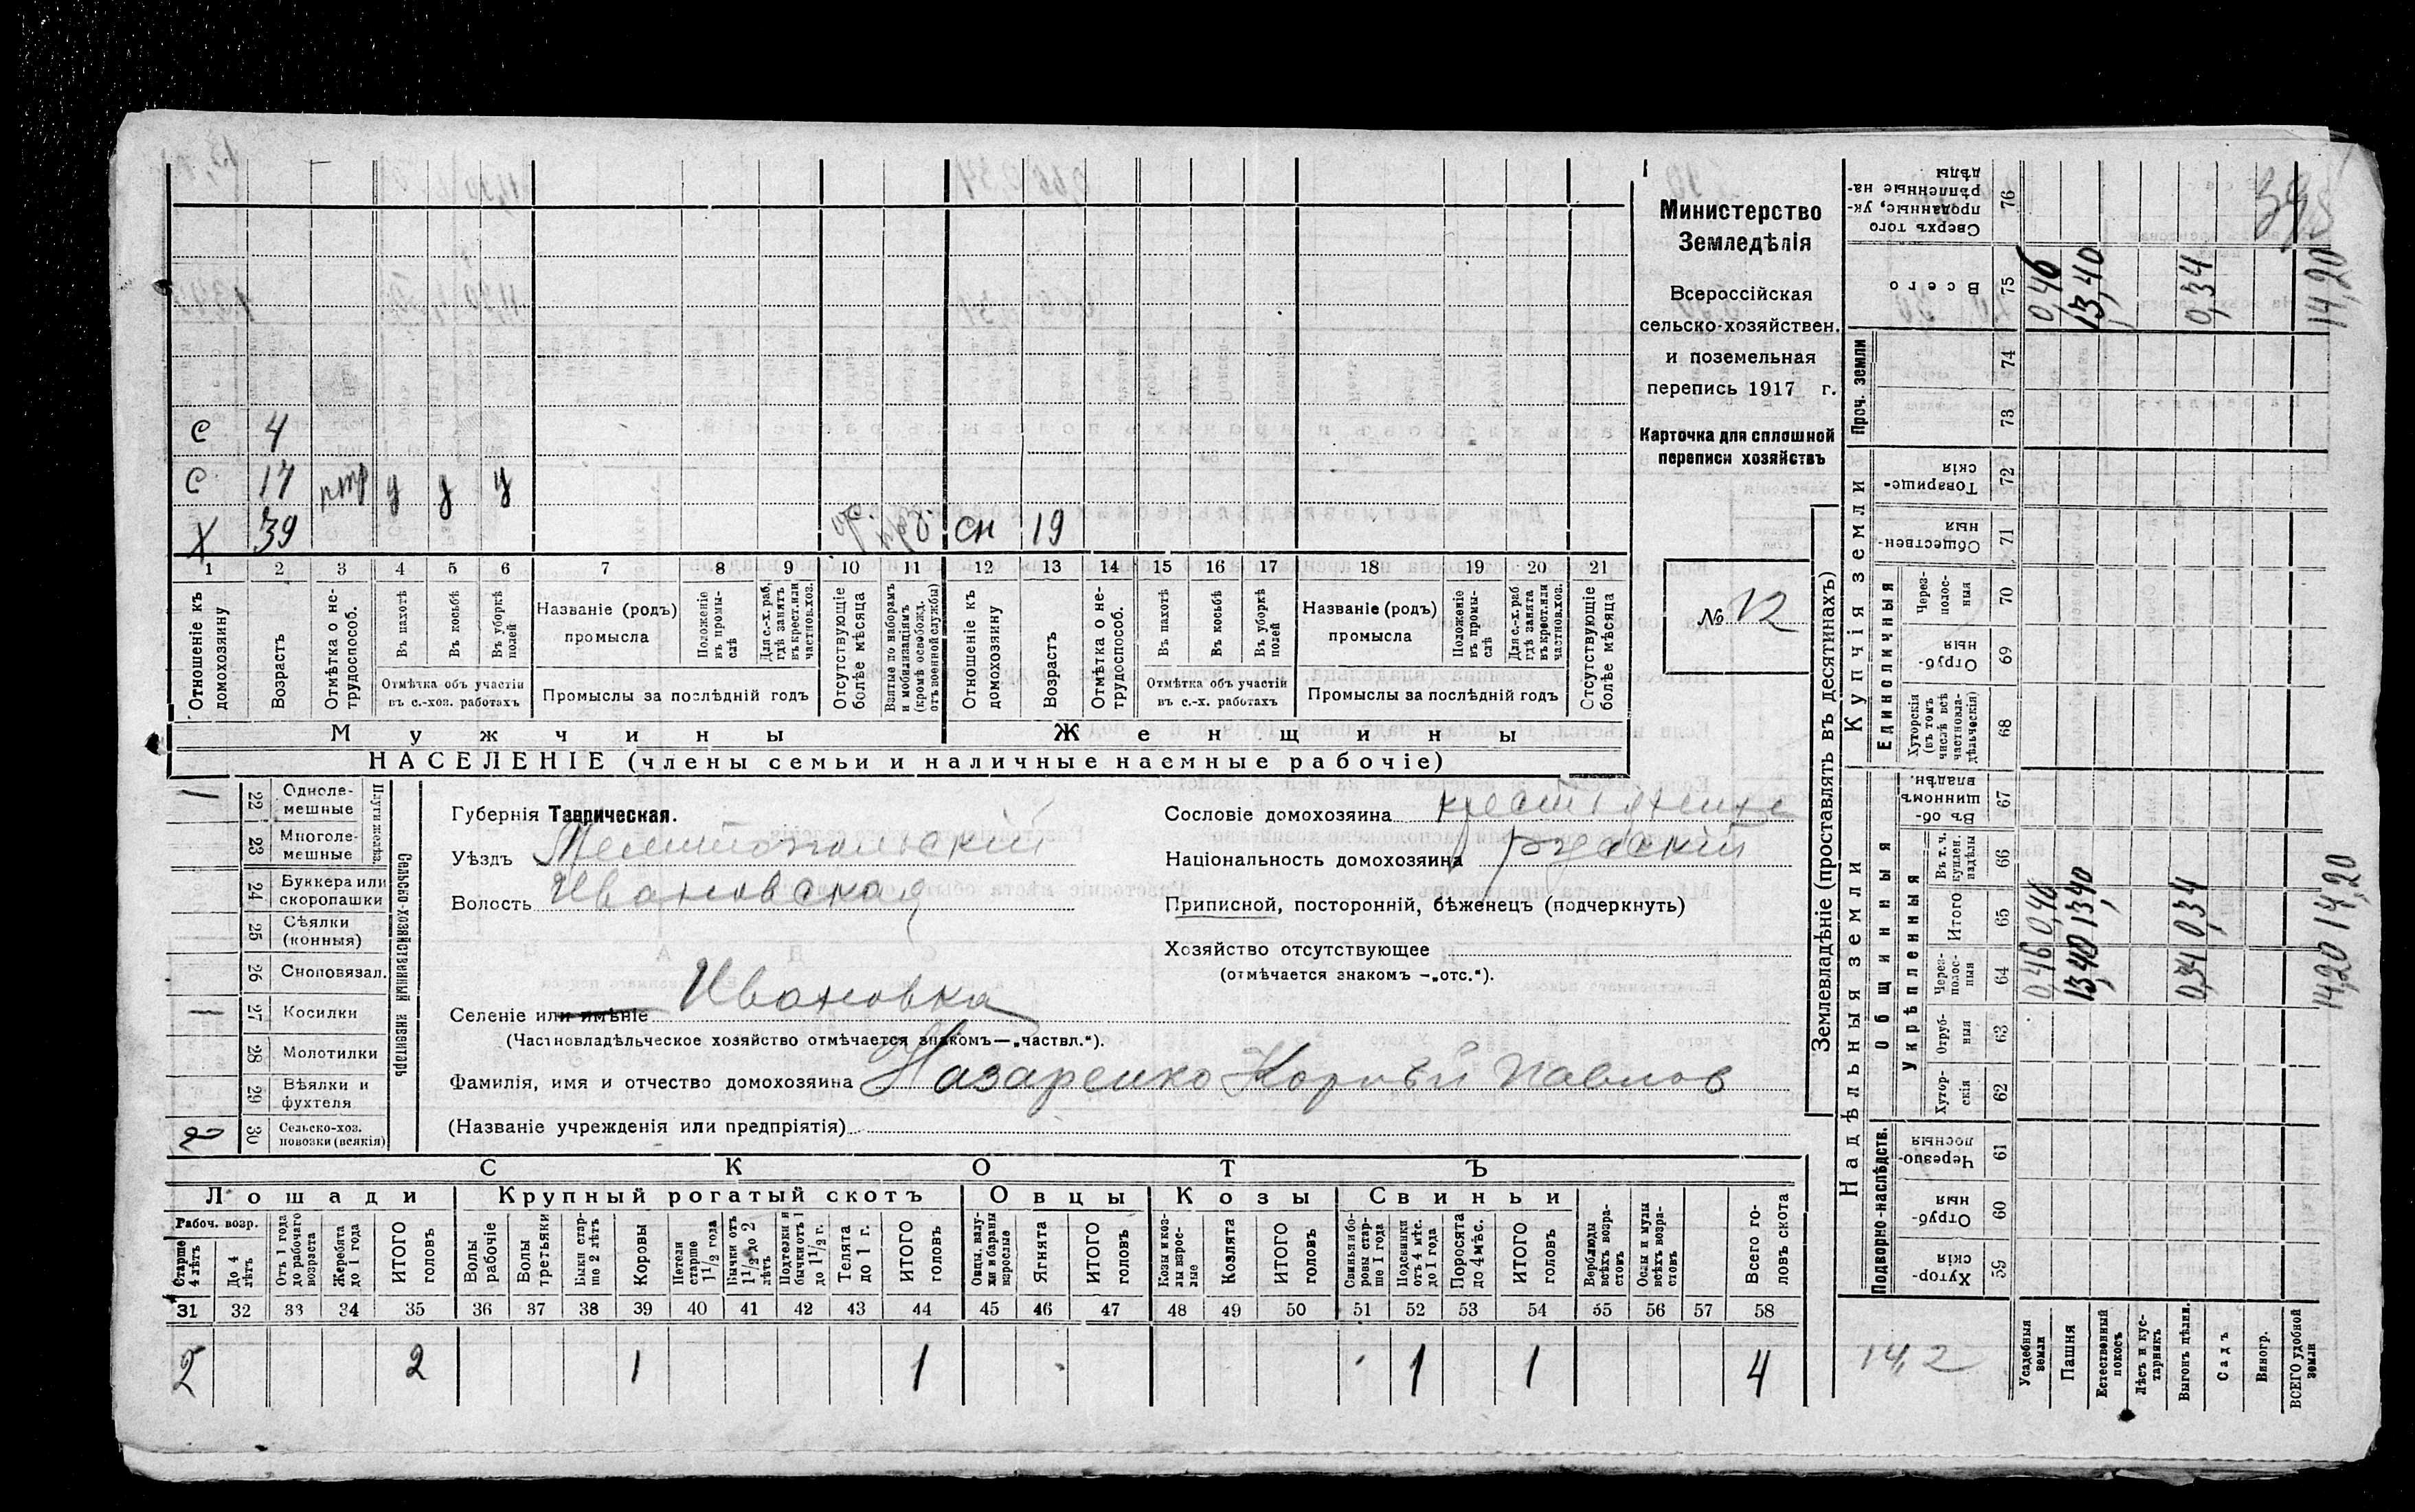 С 4
С 17 у у у
Х 39 сн 19
1 2 3 4 5 6 7 8 9 10 11 12 13 14 15 16 17 18 19 20 21
Отношеніе къ домохозяину
Возрастъ
Отмѣтка о не-трудоспособ.
Въ пахотѣ
Въ косьбѣ
Въ уборкѣ полей
Отмѣтка объ участіи въ с.-хоз. работахъ
Названіе (родъ) промысла
Положеніе въ промы-слѣ
Для с.-х. раб, гдѣ занятъ въ крест. или частнов.хоз.
Промыслы за послѣдній годъ
Отсутствующіе болѣе мѣсяца
Взятые по наборамъ и мобилизаціямъ (кромѣ освобожд. отъ военной службы)
Отношеніе къ домохозяину
Возрастъ
Отмѣтка о не-трудоспособ.
Въ пахотѣ
Въ косьбѣ
Въ уборкѣ полей
Отмѣтка объ участіи въ с.-х. работахъ
Названіе (родъ) промысла
Положеніе въ промы-слѣ
Для с.-х. раб гдѣ занята въ крест. или частнов.хоз.
Промыслы за послѣдній годъ
Отсутствующіе болѣе мѣсяца
Мужчины Женщины
НАСЕЛЕНІЕ (члены семьи и наличные наемные рабочіе)
Министерство
Земледѣлія
Всероссійская
сельско-хозяйствен.
и поземельная
перепись 1917 г.
Карточка для сплошной
переписи хозяйствъ
№ 12
1 22 Одноле-мешные
23 Многоле-мешные
Плуги желѣз.
24 Буккера или скоропашки
25 Сѣялки (конныя)
26 Сноповязал.
1 27 Косилки
28 Молотилки
29 Вѣялки и фухтеля
2 30 Сельско-хоз. повозки (всякія)
Сельско-хозяйственный инвентарь
Губернія Таврическая.
Уѣздъ Мелитопольскій
Волость Ивановская
Селеніе или имѣніе Ивановка
(Частновладѣльческое хозяйство отмѣчается знакомъ—„частвл.“).
Фамилія, имя и отчество домохозяина Назаренко Корнѣй Павлов
(Названіе учрежденія или предпріятія)
Сословіе домохозяина крестьянинъ
Національность домохозяина русскій
Приписной, посторонній, бѣженецъ (подчеркнуть)
Хозяйство отсутствующее
(отмѣчается знакомъ —„отс.“).
СКОТЪ
Лошади Крупный рогатый скотъ Овцы Козы Свиньи
Рабоч. возр.
Старше 4 лѣтъ
До 4 лѣтъ
Отъ 1 года до рабочаго возраста
Жеребята до 1 года
ИТОГО головъ
Волы рабочіе
Волы третьяки
Быки стар-ше 2 лѣтъ
Коровы
Нетели старше 1½ года
Бычки отъ 1½ до 2 лѣтъ
Подтелки и бычки отъ 1 до 1½ г.
Телята до 1 г.
ИТОГО головъ
Овцы, валу-хи и бараны взрослые
Ягнята
ИТОГО головъ
Козы и коз-лы взрос-лые
Козлята
ИТОГО головъ
Свиньи и бо-ровы стар-ше 1 года
Подсвинки отъ 4 мѣс. до 1 года
Поросята до 4 мѣс.
ИТОГО головъ
Верблюды всѣхъ возра-стовъ
Ослы и мулы всѣхъ возра-стовъ
Всего го-ловъ скота
31 32 33 34 35 36 37 38 39 40 41 42 43 44 45 46 47 48 49 50 51 52 53 54 55 56 57 58
2 2 1 1 1 1 4
Землевладѣніе (проставлять въ десятинахъ)
Надѣльныя земли Купчія земли
Проч. земли
Подворно-наслѣдств.
Общинныя
Укрѣпленныя
Единоличныя
Сверхъ того проданные, ук-рѣпленные на-дѣлы 76
Всего 75 0,46 13,40 0,34 14,20
74
73
Товарище-скія 72
Обществен-ныя 71
Черезполос-ныя 70
Отруб-ныя 69
Хуторскія (въ томъ числѣ всѣ частновла-дѣльческія) 68
Въ об-щинномъ владѣн. 67
Въ т. ч. куплен. надѣлы 66
Итого 65 0,46 13,40 0,34 14,20
Черезполос-ныя 64 0,46 13,40 0,34 14,20
Отруб-ныя 63
Хутор-скія 62
Черезпо-лосныя 61
Отруб-ныя 60
Хутор-скія 59
14,2
Усадебныя земли
Пашня
Естественный покосъ
Лѣсъ и кус-тарникъ
Выгонъ цѣлин.
Садъ
Виногр.
ВСЕГО удобной земли